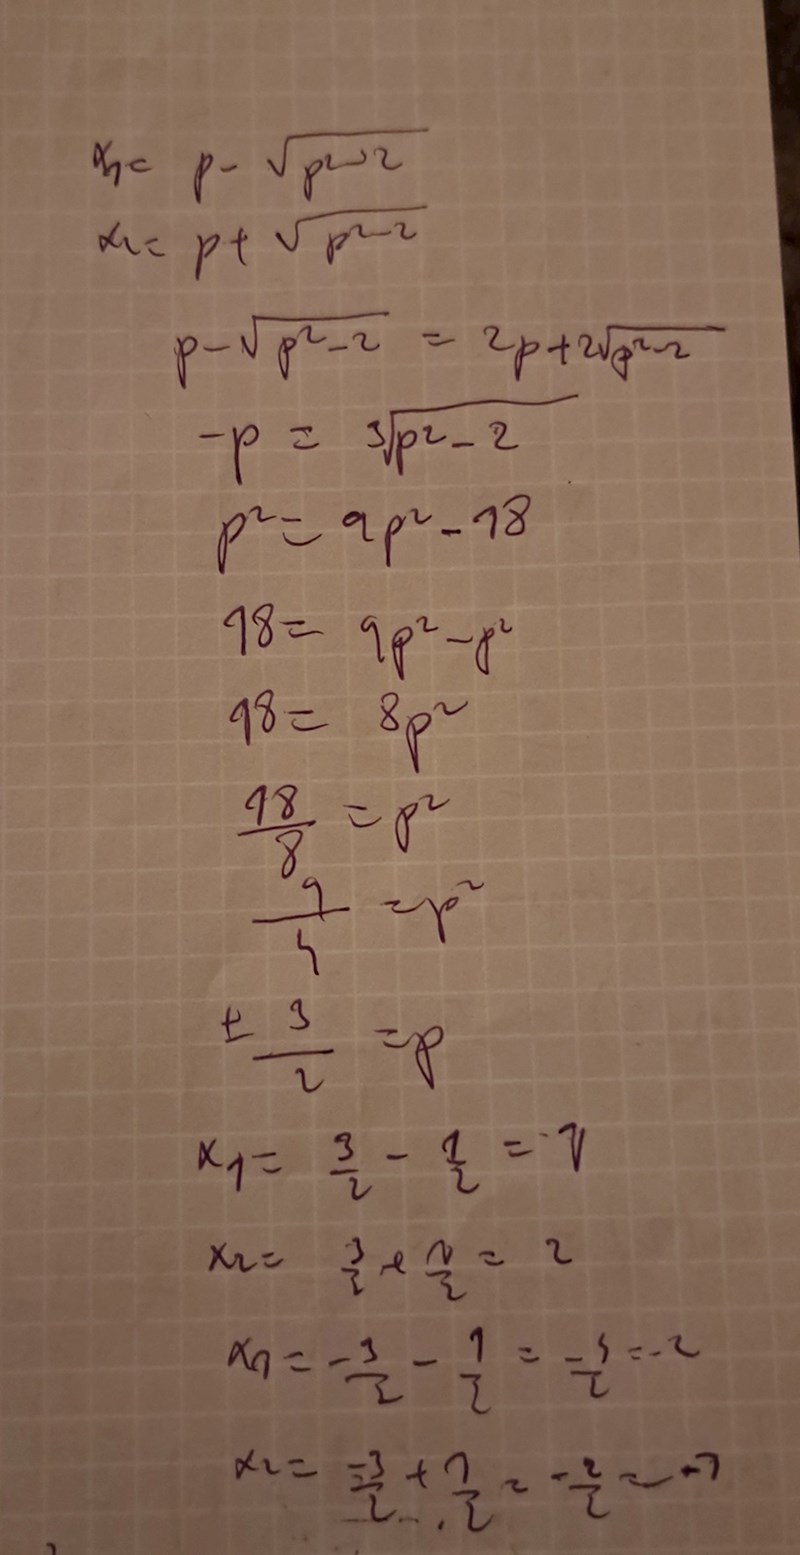 x₁= p - √(p²-2)
x₂= p + √(p²-2)
p-√(p²-2) = 2p+2√(p²-2)
-p = 3√(p²-2)
p² = 9p² - 18
18 = 9p² - p²
18 = 8p²
18/8 = p²
9/4 = p²
± 3/2 = p
x₁ = 3/2 - 1/2 = 1
x₂ = 3/2 + 1/2 = 2
x₁ = -3/2 - 1/2 = -4/2 = -2
x₂ = -3/2 + 1/2 = -2/2 = -1